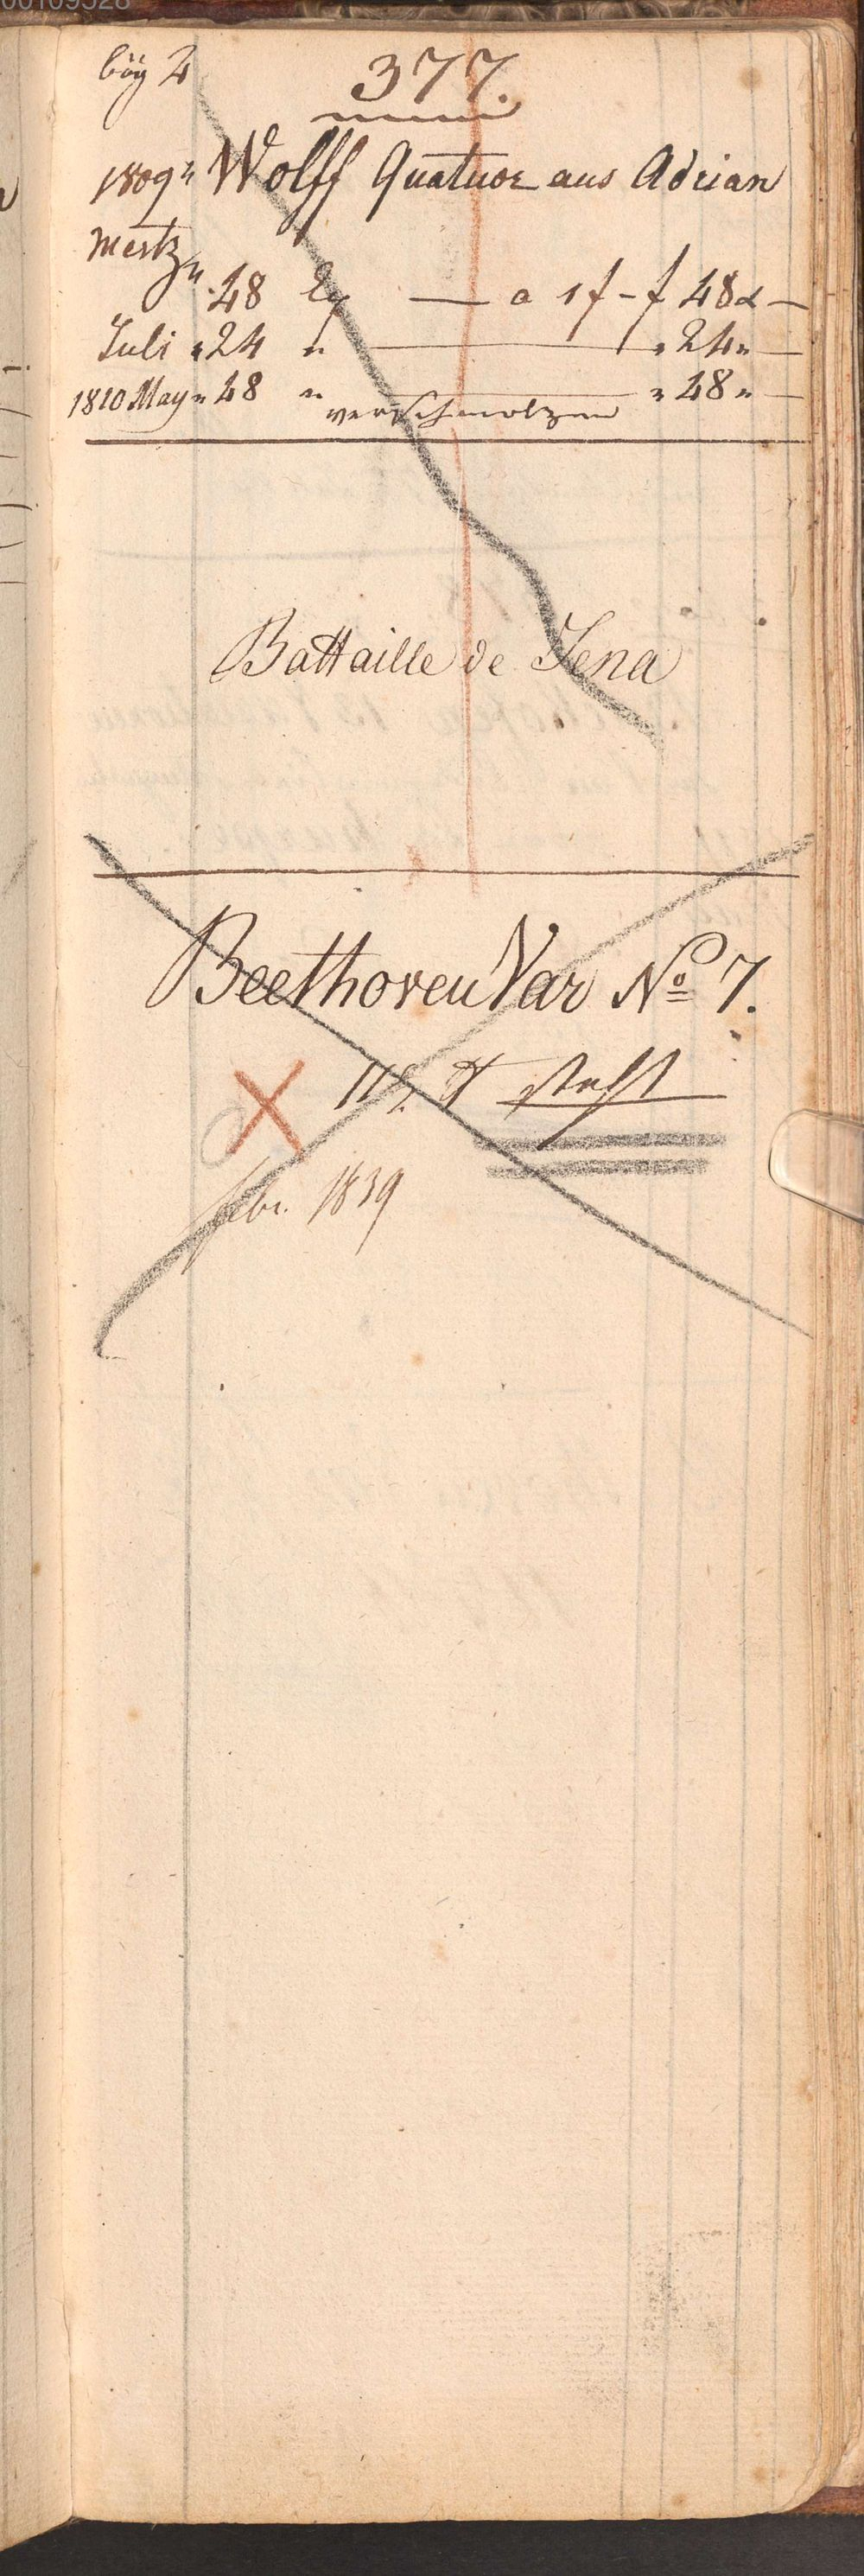 bög 2
377.
1809 " Wolff Quatuor aus Adrian
Mertz
" 48 Ex — a 1 f - f 48 x —
Juli " 24 " — " 24 " —
1810 May " 48 " — " 48 " —
verschmolzen
Battaille de Jena
Beethoven Var No 7.
steht
febr. 1839